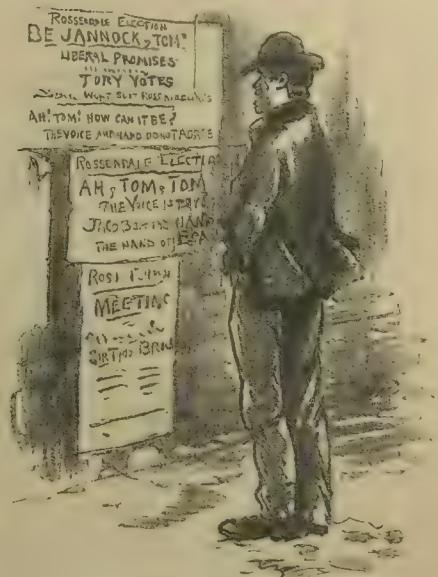 ROSSENDALE ELECTION
BE JANNOCK, TOM!
LIBERAL PROMISES
TORY VOTES
WONT SUIT
AH! TOM! HOW CAN IT BE?
THE VOICE AND HAND DO NOT AGREE
ROSSENDALE ELECTIO
AH, TOM, TOM
THE VOICE IS
JACOB HAND
THE HAND OF ESA
ROSS
MEETING
SIR THOS BR